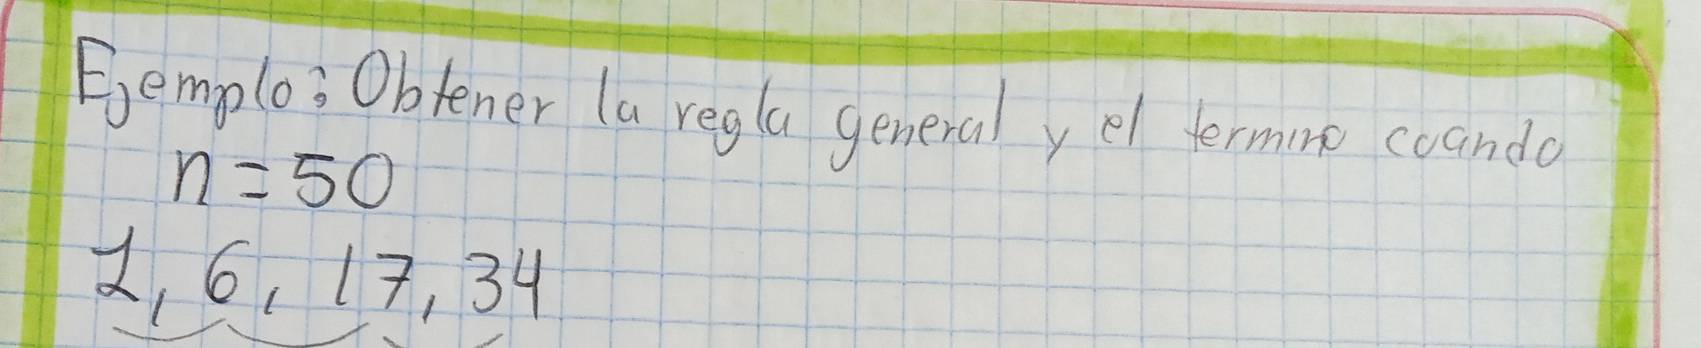 Ejemplo: Obtener la regla general y el termino cuando
n=50
1, 6, 17, 34